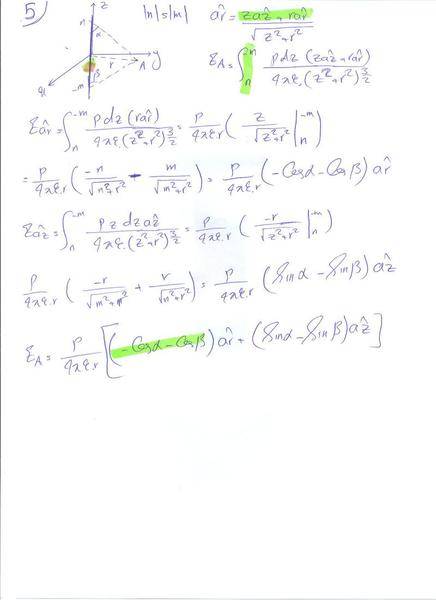 5)
z
n
α
β
r
A
y
-m
x
|n|≤|m|
ar̂ = (zaẑ + rar̂)/√(z²+r²)
ℰA = ∫ₙ⁻ᵐ ρdz (zaẑ + rar̂) / 4πε₀(z²+r²)^(3/2)
ℰar̂ = ∫ₙ⁻ᵐ ρdz (rar̂) / 4πε₀(z²+r²)^(3/2) = ρ/4πε₀r ( z/√(z²+r²) |ₙ⁻ᵐ )
= ρ/4πε₀r ( -n/√(n²+r²) - m/√(m²+r²) ) = ρ/4πε₀r (-Cosα - Cosβ) ar̂
ℰaẑ = ∫ₙ⁻ᵐ ρzdz aẑ / 4πε₀(z²+r²)^(3/2) = ρ/4πε₀r ( -r/√(z²+r²) |ₙ⁻ᵐ )
ρ/4πε₀r ( -r/√(m²+r²) + r/√(n²+r²) ) = ρ/4πε₀r (Sinα - Sinβ) aẑ
ℰA = ρ/4πε₀r [(-Cosα - Cosβ) ar̂ + (Sinα - Sinβ) aẑ]